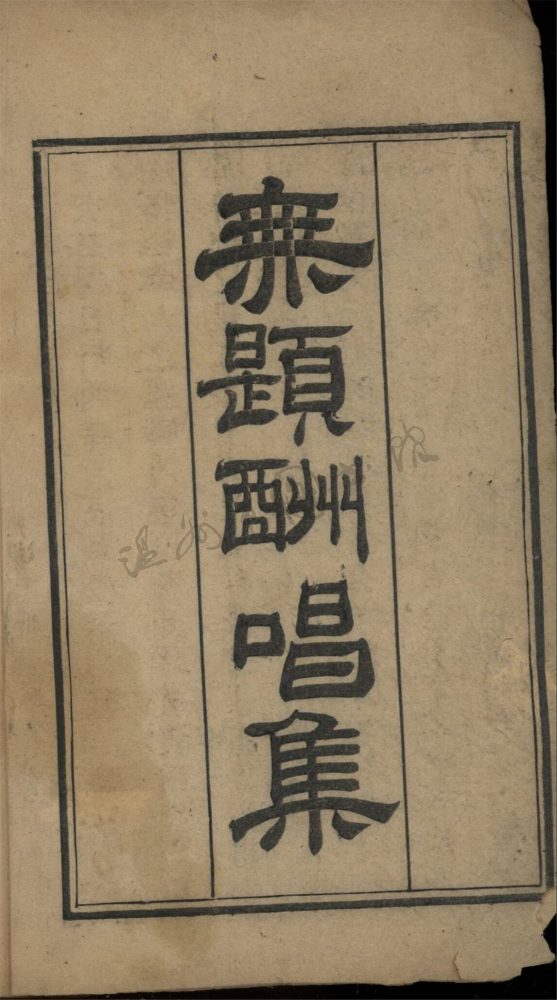 無題酬唱集